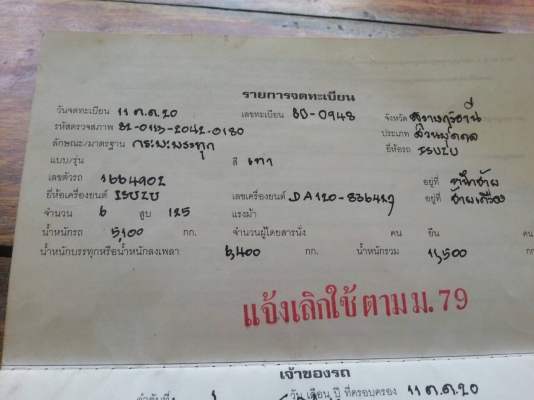 รายการจดทะเบียน
วันจดทะเบียน 11 ต.ค.20 เลขทะเบียน 80-0948 จังหวัด สุราษฎร์ธานี
รหัสตรวจสภาพ 82-0113-2042-0180 ประเภท ส่วนบุคคล
ลักษณะ/มาตรฐาน กระบะบรรทุก ยี่ห้อรถ ISUZU
แบบ/รุ่น สี เทา
เลขตัวรถ 1664902 อยู่ที่
ยี่ห้อเครื่องยนต์ ISUZU เลขเครื่องยนต์ DA120-836427 อยู่ที่
จำนวน 6 สูบ 125 แรงม้า
น้ำหนักรถ 5,100 กก. จำนวนผู้โดยสารนั่ง คน ยืน คน
น้ำหนักบรรทุกหรือน้ำหนักลงเพลา 6,400 กก. น้ำหนักรวม 11,500 กก
แจ้งเลิกใช้ ตาม ม. 79
เจ้าของรถ
ลำดับที่ วัน เดือน ปี ที่ครอบครอง 11 ต.ค.20